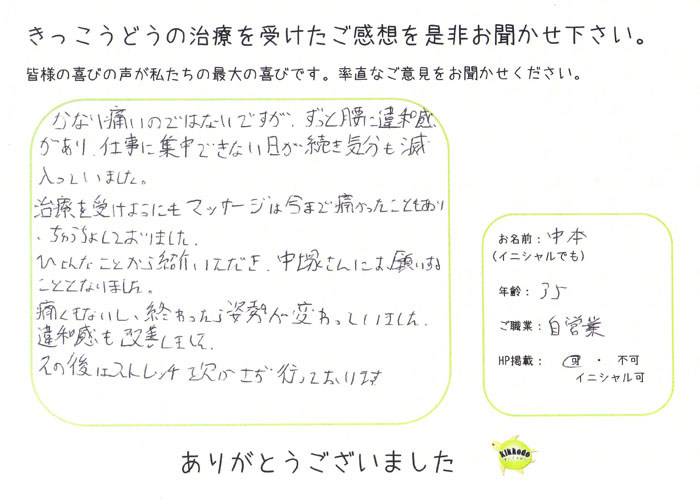 きっこうどうの治療を受けたご感想を是非お聞かせ下さい。
皆様の喜びの声が私たちの最大の喜びです。率直なご意見をお聞かせください。
かなり痛いのではないですが、ずっと腰に違和感
があり、仕事に集中できない日が続き気分も滅
入っていました。
治療を受けようにもマッサージは今まで痛かったこともあり
、ちゅうちょしておりました。
ひょんなことから紹介いただき、中塚さんにお願いする
こととなりました。
痛くもないし、終わったら姿勢が変わっていました。
違和感も改善しました。
その後はストレッチ 行っております
お名前：中本
(イニシャルでも)
年齢：35
ご職業：自営業
HP掲載：可 ・ 不可
イニシャル可
ありがとうございました
kikkodo